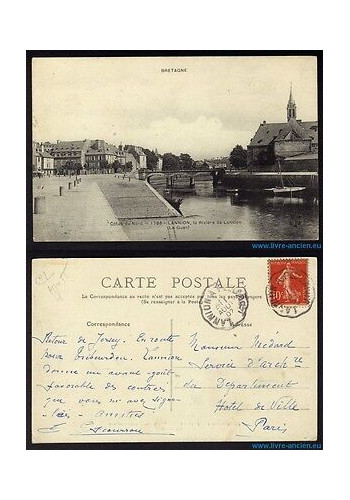 BRETAGNE
Côtes du Nord - 1786 - LANNION, la Rivière de Lannion
(Le Guer)
www.livre-ancien.eu
CARTE POSTALE
La Correspondance au recto n'est pas acceptée par les pays étrangers
(Se renseigner à la Poste)
Correspondance
Adresse
Retour de Jersey. En route
pour Trébeurden. Lannion
donne un avant goût
favorable des contrées
que vous m'avez signa-
lées - amitiés
Monsieur Médard
Service d'arch.re
du Département
Hotel de Ville
Paris
LANNION
10
www.livre-ancien.eu